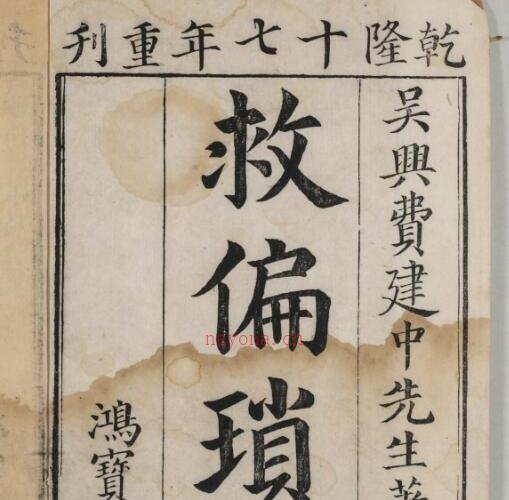 乾隆十七年重刊
吴興費建中先生
救偏瑣
鴻寶
nqyona.cn